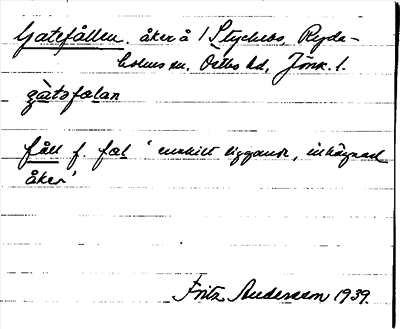 Gatefållen. åker å 1 Stycksbo, Ryda-
holms sn. Östbo hd, Jönk. l.
gàtəfəlan
fåll f. fəl 'enskilt liggande, inhägnad
åker'
Fritz Andersson 1939.